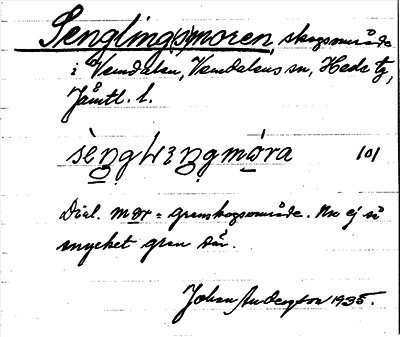 Senglings(s)moren, skogsområde
i Vemdalen, Vemdalens sn, Hede tg,
Jämtl. l.
101
Dial. mor = granskogsområde. Nu ej så
mycket gran där.
Johan Anderson 1935.